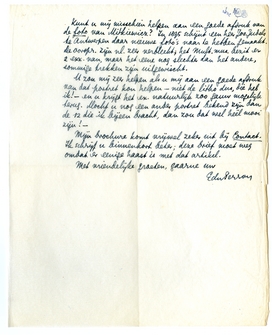 Kunt u mij misschien helpen aan een goede afdruk van
de foto van Mitkiewicz? In 1895 schijnt een heer
de Antwerpen daar nieuwe foto's van te hebben gemaakt.
De oorspr. zijn nl. zeer verbleekt, het Mult. mus. bezit er
2 ex. van, maar het eene nog slechter dan het andere,
sommige trekken zijn uitgewischt.
U zou mij zeer helpen als u mij aan een goede afdruk
van dat portret kon helpen – niet de litho dus, die heb
ik! – en u krijgt het ex. natuurlijk zoo gauw mogelijk
terug. Mocht u nog een ander portret bekend zijn dan
de 12 die ik bijeen bracht, dan zou dat wel heel mooi
zijn! –
Mijn brochure komt vrijwel zeker uit bij Contact.
Ik schrijf u binnenkort beter; deze brief moet weg
omdat er eenige haast is met dat artikel.
Met vriendelijke groeten, gaarne uw
EduPerron